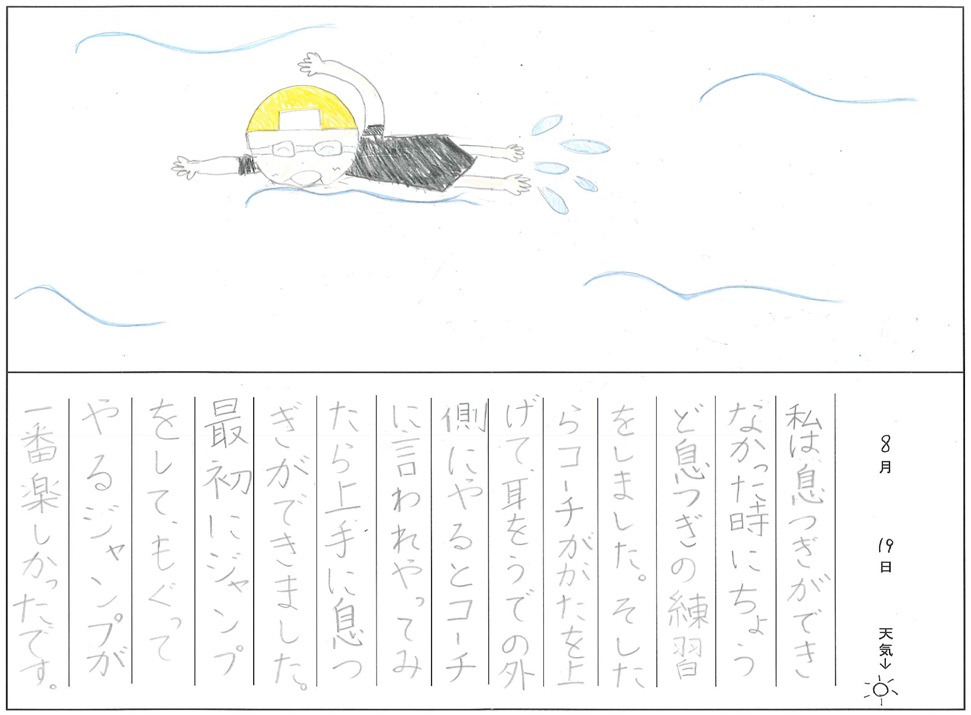 8月 19日 天気↓
私は息つぎができ
なかった時にちょう
ど息つぎの練習
をしました。そした
らコーチがかたを上
げて、耳をうでの外
側にやるとコーチ
に言われやってみ
たら上手に息つ
ぎができました。
最初にジャンプ
をして、もぐって
やるジャンプが
一番楽しかったです。